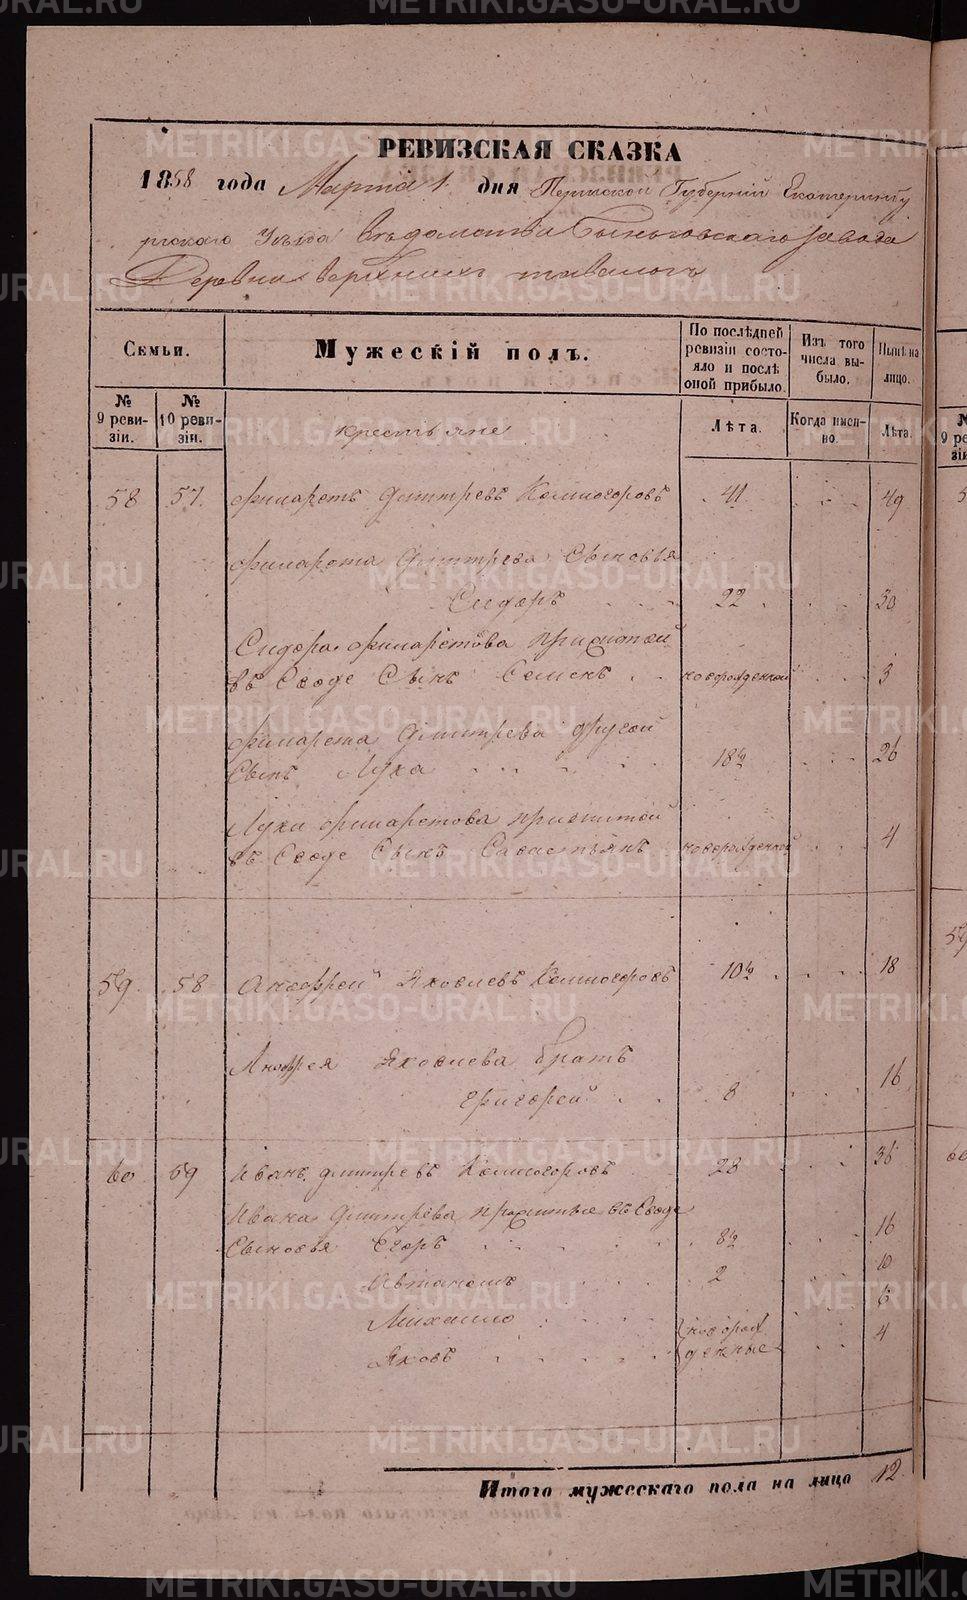 РЕВИЗСКАЯ СКАЗКА
1858 года Марта 1. дня Пермской Губерніи Екатеринбу
ргскаго Уѣзда Вѣдомства Быньговскаго завода
Деревни Верхнихъ тавологъ
Семьи.
Мужескій полъ.
По послѣдней ревизіи состояло и послѣ оной прибыло.
Изъ того числа выбыло.
Нынѣ на лицо.
№ 9 ревизіи.
№ 10 ревизіи.
крестьяне
Лѣта.
Когда именно.
Лѣта.
58 57. Филаретъ Дмитревъ Колмогоровъ 41 49
Филарета Дмитрева Сыновья
Сидоръ 22 30
Сидора Филаретова прижитой
въ Сводѣ Сынъ Семенъ новорожденной 3
Филарета Дмитрева другой
Сынъ Лука 18½ 26
Луки Филаретова прижитой
въ Сводѣ Сынъ Савастьянъ новорожденной 4
59 58 Андрей Яковлевъ Колмогоровъ 10½ 18
Андрея Яковлева братъ
Григорей 8 16
60 59 Иванъ Дмитревъ Колмогоровъ 28 36
Ивана Дмитрева прижитые въ Сводѣ
Сыновья Егоръ 8½ 16
Автаномъ 2 10
Михаило новорож 6
Яковъ денные 4
Итого мужескаго пола на лицо 12.
METRIKI.GASO-URAL.RU